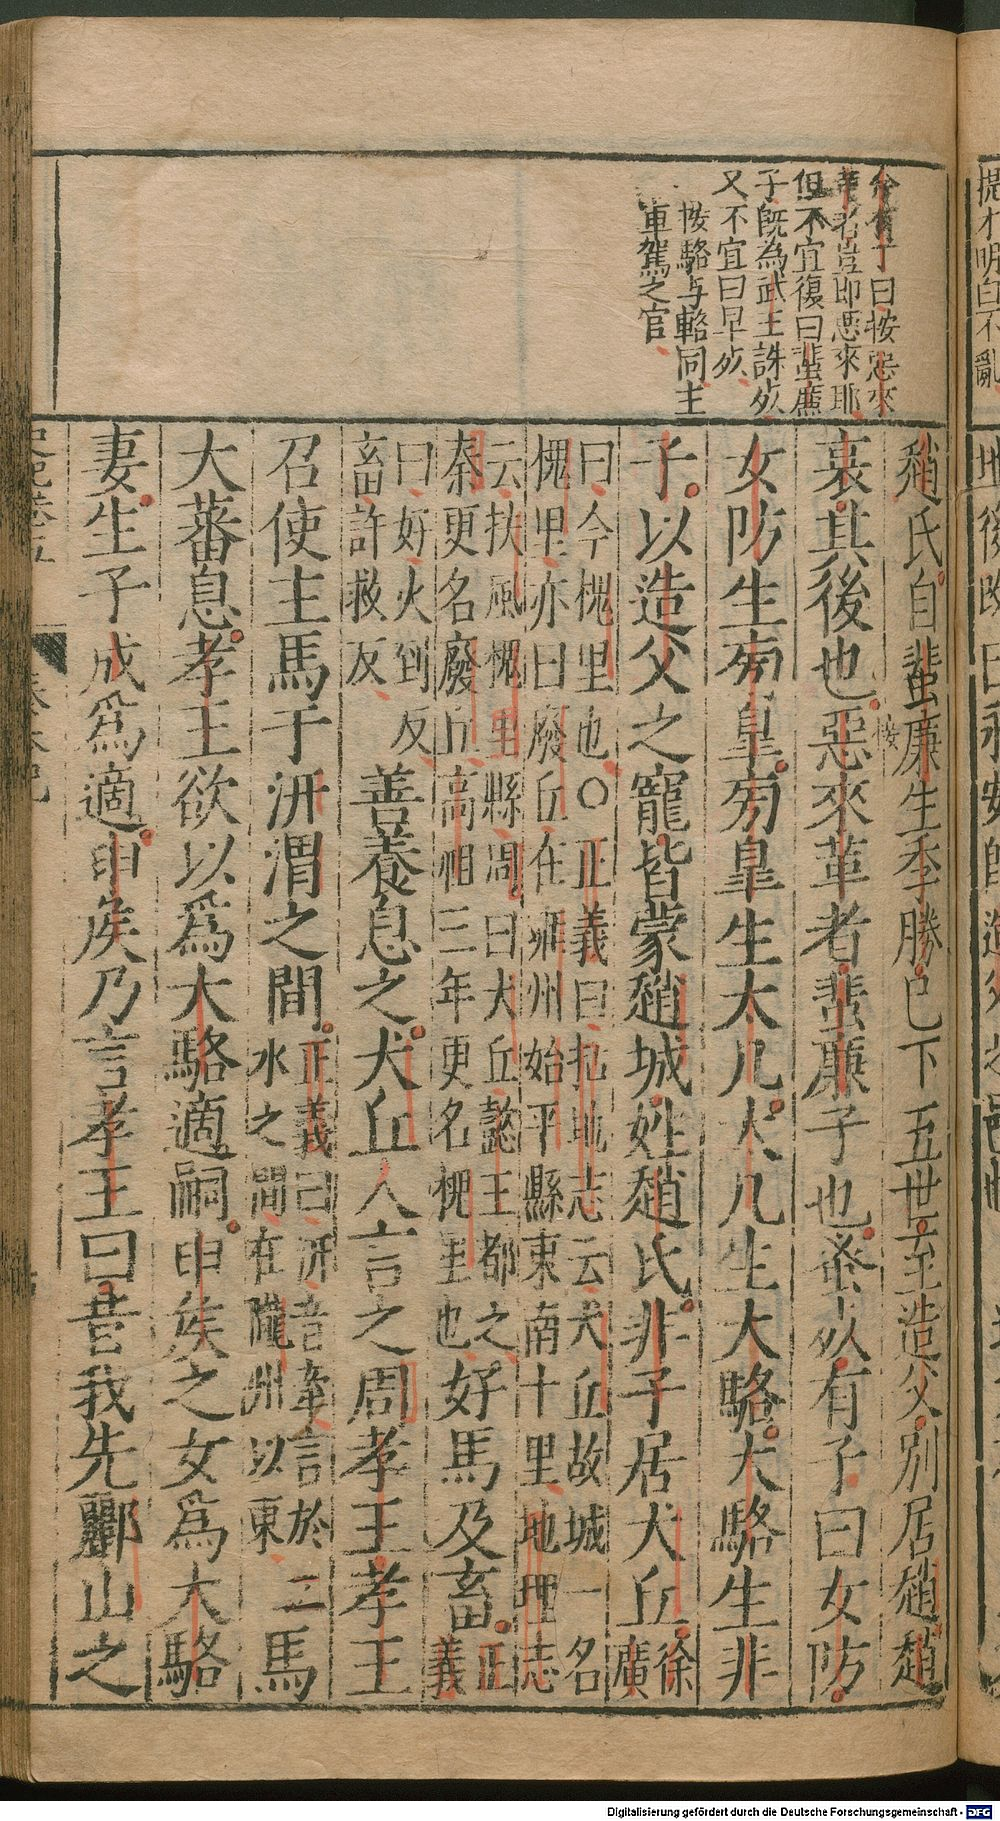 余有丁曰按惡來
革者豈即惡來耶
但不宜復曰蜚廉
子既為武王誅死
又不宜曰早死
按駱与輅同主
車駕之官
趙氏自蜚廉生季勝已下五世至造父別居趙趙
衰其後也惡來革者蜚廉子也蚤死有子曰女防
女防生旁皐旁皐生太几太几生大駱大駱生非
子以造父之寵皆蒙趙城姓趙氏非子居犬丘徐廣
曰今槐里也○正義曰括地志云犬丘故城一名
槐里亦曰廢丘在雍州始平縣東南十里地理志
云扶風槐里縣周曰犬丘懿王都之
秦更名廢丘高祖三年更名槐里也好馬及畜正義
曰好火到反
畜許救反善養息之犬丘人言之周孝王孝王
召使主馬于汧渭之間正義曰汧音牽言於二
水之間在隴州以東馬
大蕃息孝王欲以爲大駱適嗣申侯之女爲大駱
妻生子成爲適申侯乃言孝王曰昔我先酈山之
Digitalisierung gefördert durch die Deutsche Forschungsgemeinschaft - DFG